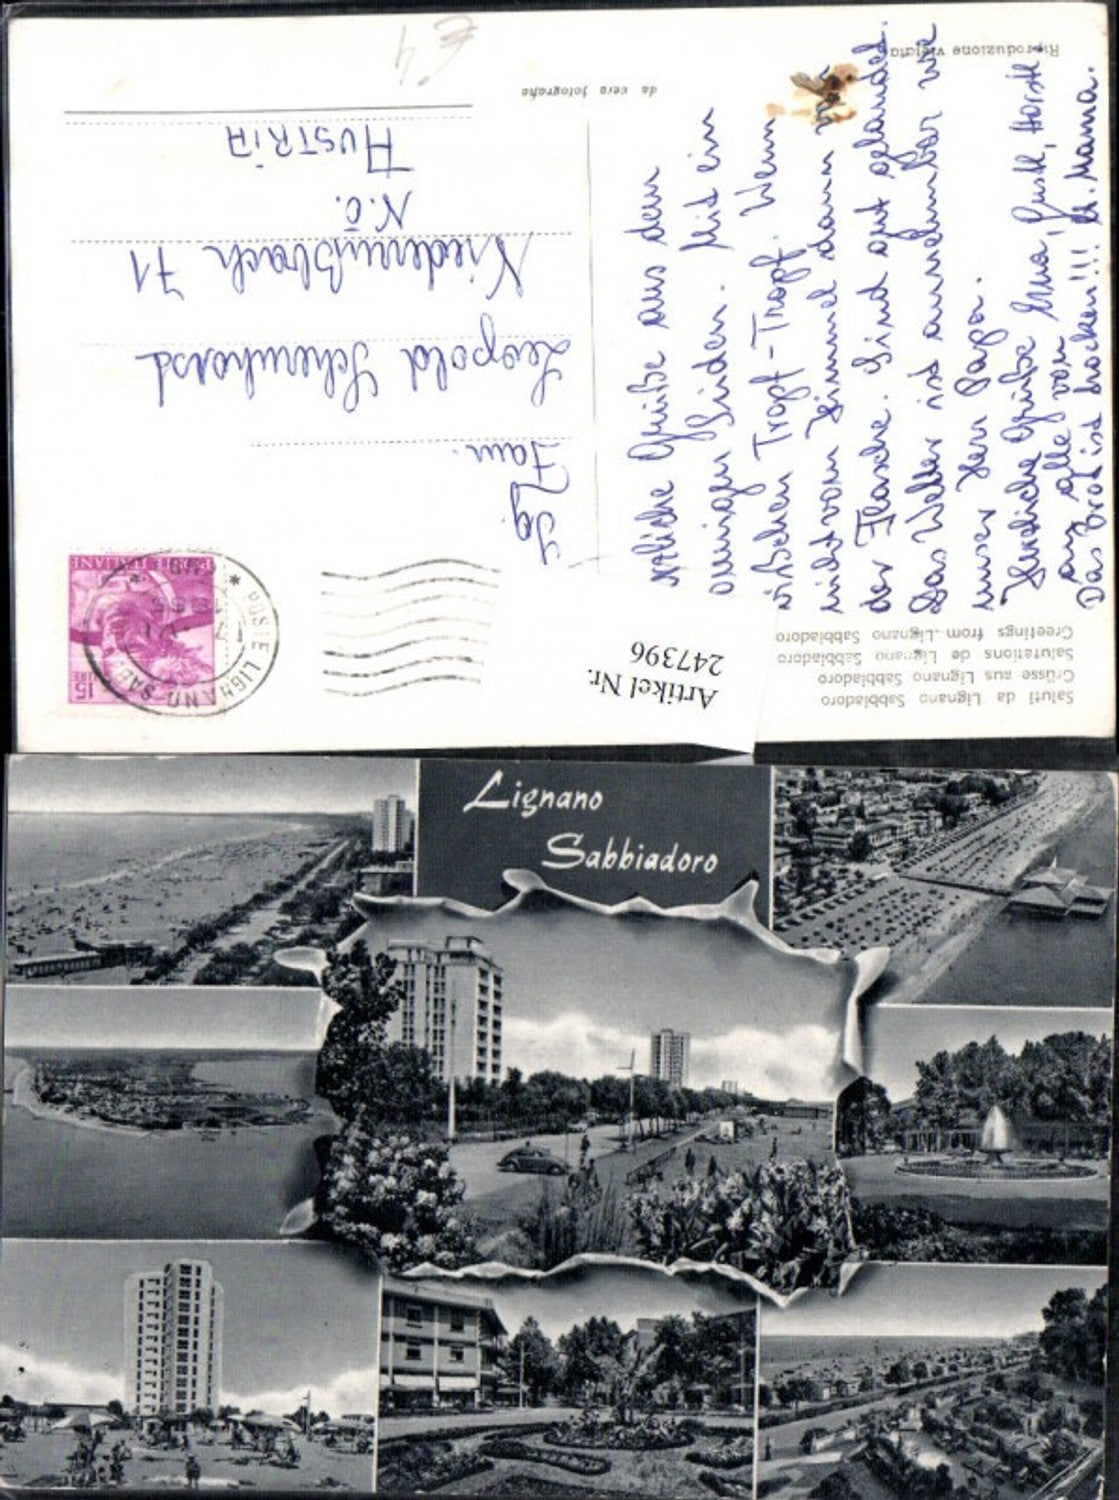 Saluti da Lignano Sabbiadoro
Grüsse aus Lignano Sabbiadoro
Salutations de Lignano Sabbiadoro
Greetings from Lignano Sabbiadoro
Artikel Nr.
247396
Herzliche Grüße aus dem
sonnigen Süden. Mid ein
bißchen Tropf-Tropf. Wenn
nicht vom Himmel dann von
der Flasche. Sind gut gelandet.
Das Wetter ist wunderbar wie
unser Herr Papa.
Herzliche Grüße Erna, Gustl, Horstl
an alle von
Das Brot ist trocken!!! Mama.
Fam.
Leopold
Niedereußbach 71
N.Ö.
AUSTRIA
da vera fotografia
Riproduzione vietata
€4
POSTE ITALIANE
15
LIRE
* POSTE LIGNANO SABB
Lignano
Sabbiadoro